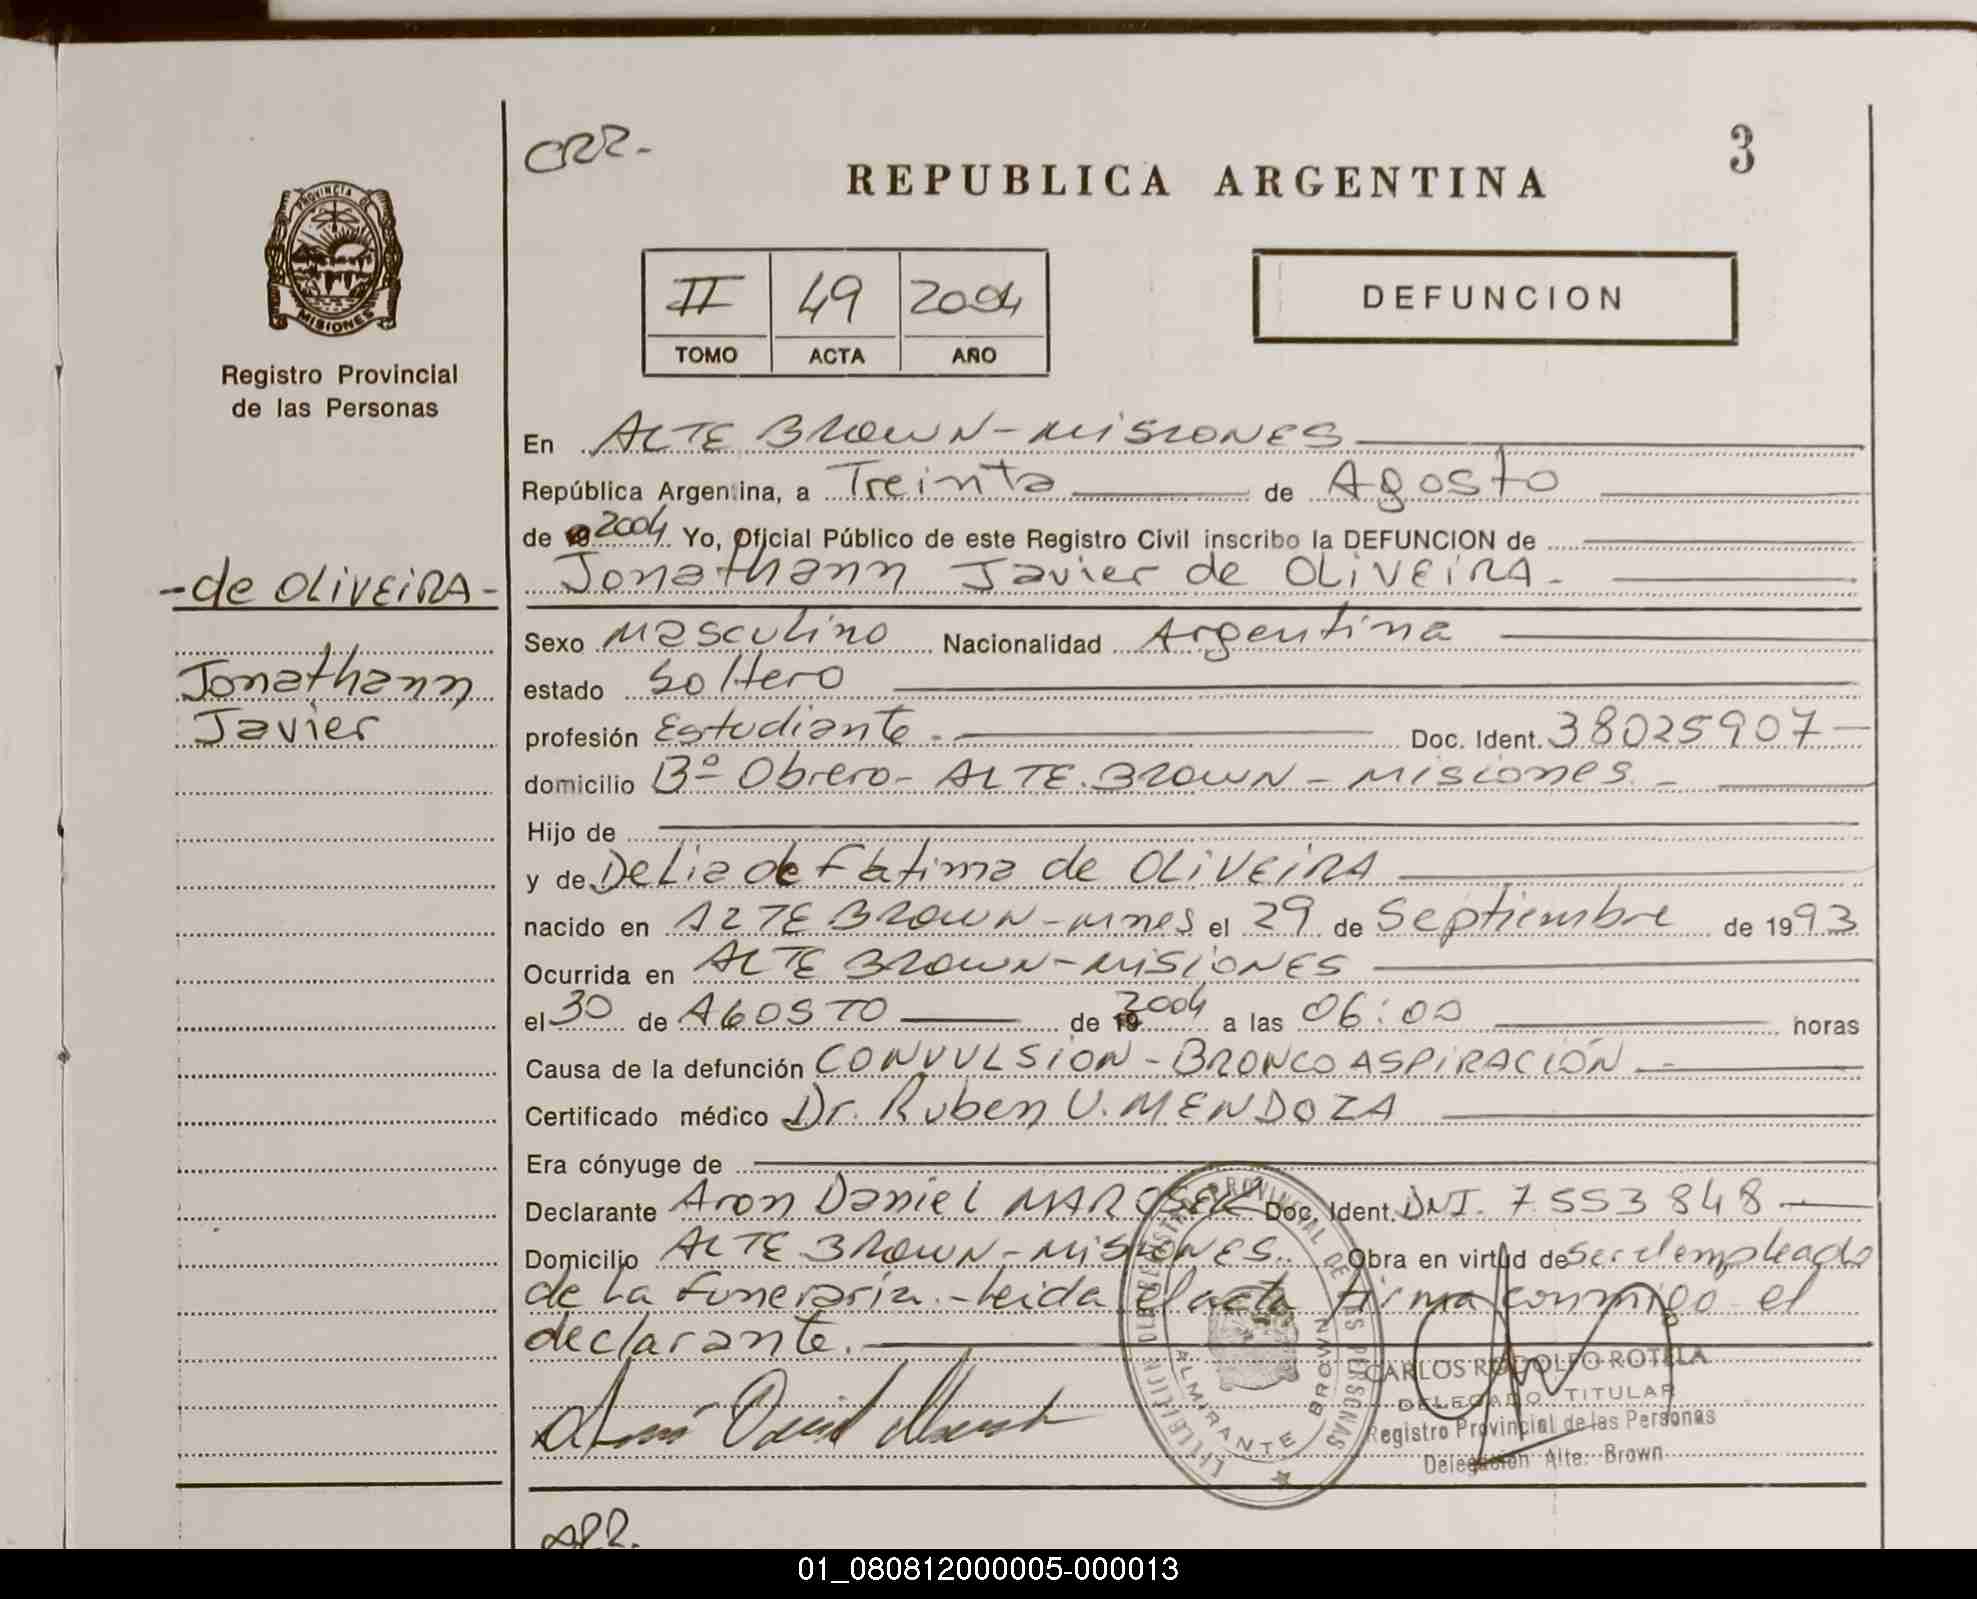 CRR.-
3
REPUBLICA ARGENTINA
PROVINCIA DE
MISIONES
Registro Provincial
de las Personas
II 49 2004
TOMO ACTA AÑO
DEFUNCION
En ALTE BROWN-MISIONES
República Argentina, a Treinta de Agosto
de 19 2004 Yo, Oficial Público de este Registro Civil inscribo la DEFUNCION de
Jonathann Javier de OLIVEIRA.
-de OLIVEIRA-
Jonathann
Javier
Sexo Masculino Nacionalidad Argentina
estado Soltero
profesión Estudiante. Doc. Ident. 38025907
domicilio Bº Obrero- ALTE. BROWN - Misiones. -
Hijo de
y de Delia de Fátima de OLIVEIRA
nacido en ALTE BROWN-Mnes el 29 de Septiembre de 1993
Ocurrida en ALTE BROWN-MISIONES
el 30 de AGOSTO de 19 2004 a las 06:00 horas
Causa de la defunción CONVULSION - BRONCOASPIRACIÓN
Certificado médico Dr. Ruben U. MENDOZA
Era cónyuge de
Declarante Aron Daniel MAROSEK Doc. Ident. DNI. 7553848
Domicilio ALTE BROWN-MISIONES. Obra en virtud de ser el empleado
de la funeraria.-leida el acta firma conmigo el
declarante.
REGISTRO PROVINCIAL DE LAS PERSONAS
ALMIRANTE BROWN
CARLOS RODOLFO ROTELA
DELEGADO TITULAR
Registro Provincial de las Personas
Delegación Alte. Brown
01_080812000005-000013